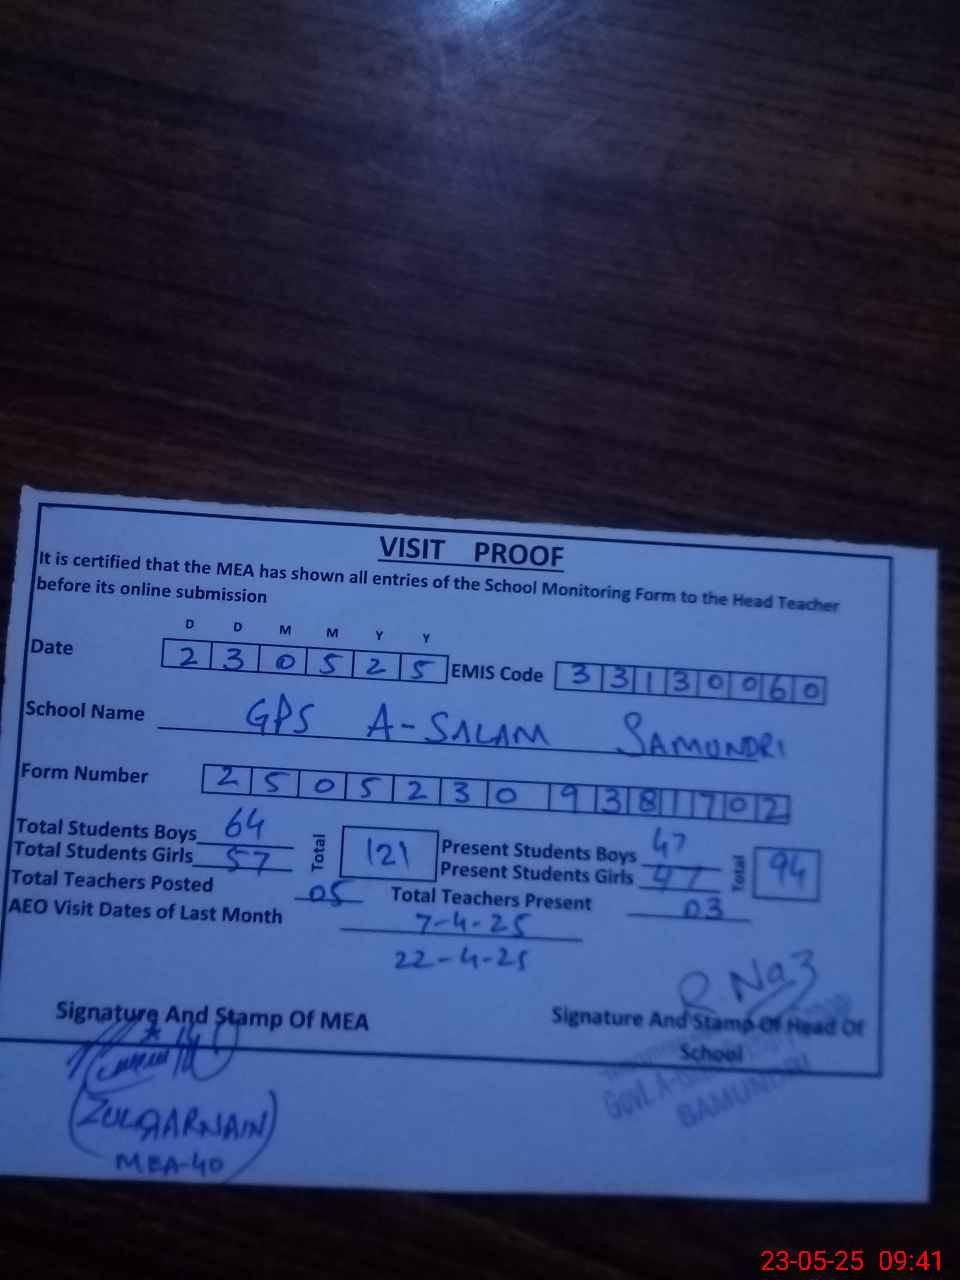 VISIT PROOF
It is certified that the MEA has shown all entries of the School Monitoring Form to the Head Teacher
before its online submission
D D M M Y Y
Date 2 3 0 5 2 5 EMIS Code 3 3 1 3 0 0 6 0
School Name GPS A-SALAM SAMUNDRI
Form Number 2 5 0 5 2 3 0 9 3 8 1 7 0 2
Total Students Boys 64 Total 121 Present Students Boys 47 Total 94
Total Students Girls 57 Present Students Girls 47
Total Teachers Posted 05 Total Teachers Present 03
AEO Visit Dates of Last Month 7-4-25
22-4-25
Signature And Stamp Of MEA
Signature And Stamp Of Head Of
School
Govt. A-
SAMUNDRI
(ZULQARNAIN)
MEA-40
23-05-25 09:41